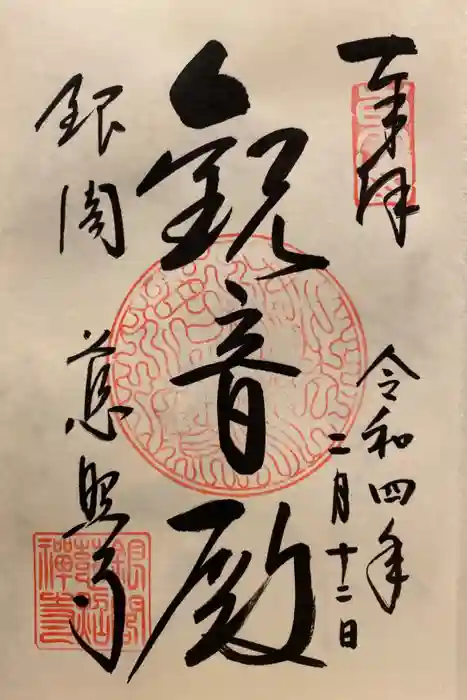 奉拝
令和四年
二月十二日
觀音殿
銀閣
慈照寺